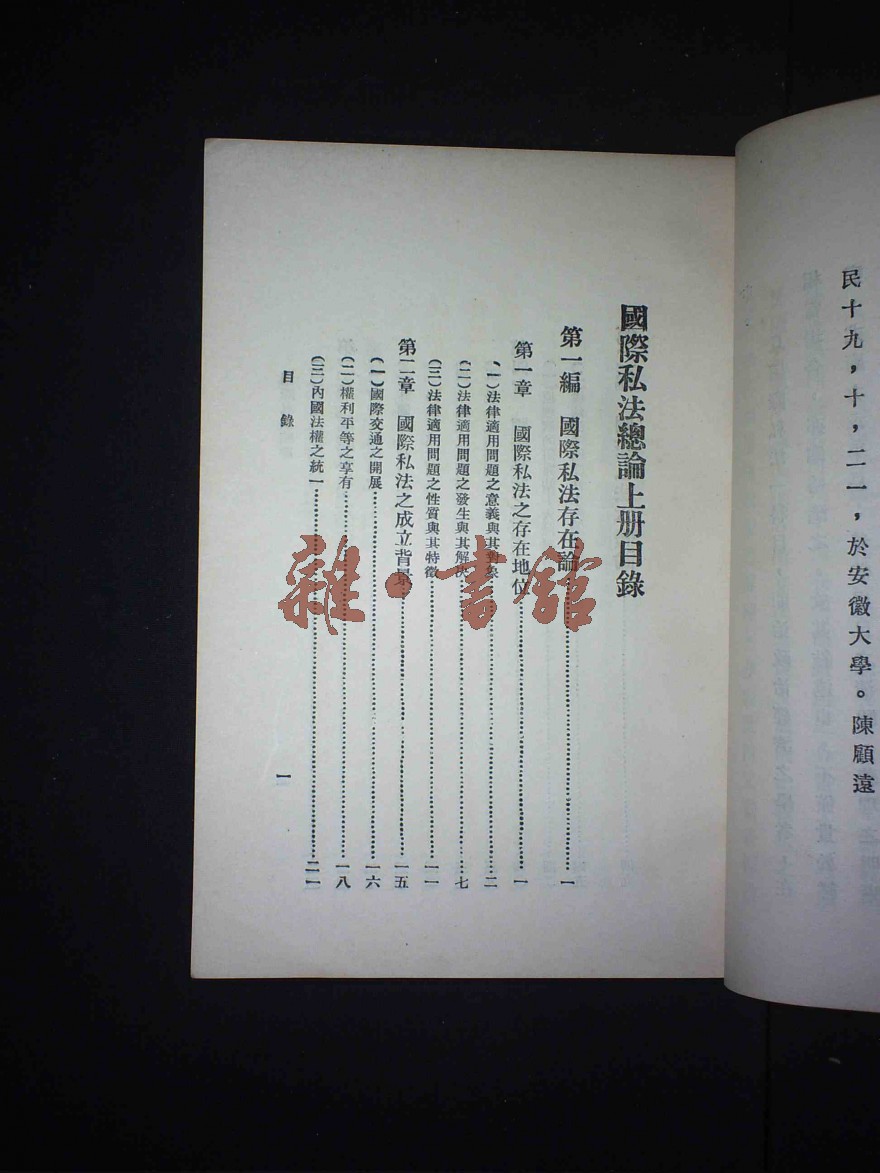 民十九，十，二一，於安徽大學。陳顧遠
國際私法總論上册目錄
第一編　國際私法存在論……一
第一章　國際私法之存在地位……一
（一）法律適用問題之意義與其對象……二
（二）法律適用問題之發生與其解決……七
（三）法律適用問題之性質與其特徵……一一
第二章　國際私法之成立背景……一五
（一）國際交通之開展……一六
（二）權利平等之享有……一八
（三）內國法權之統一……二一
目錄
一
雜·書館